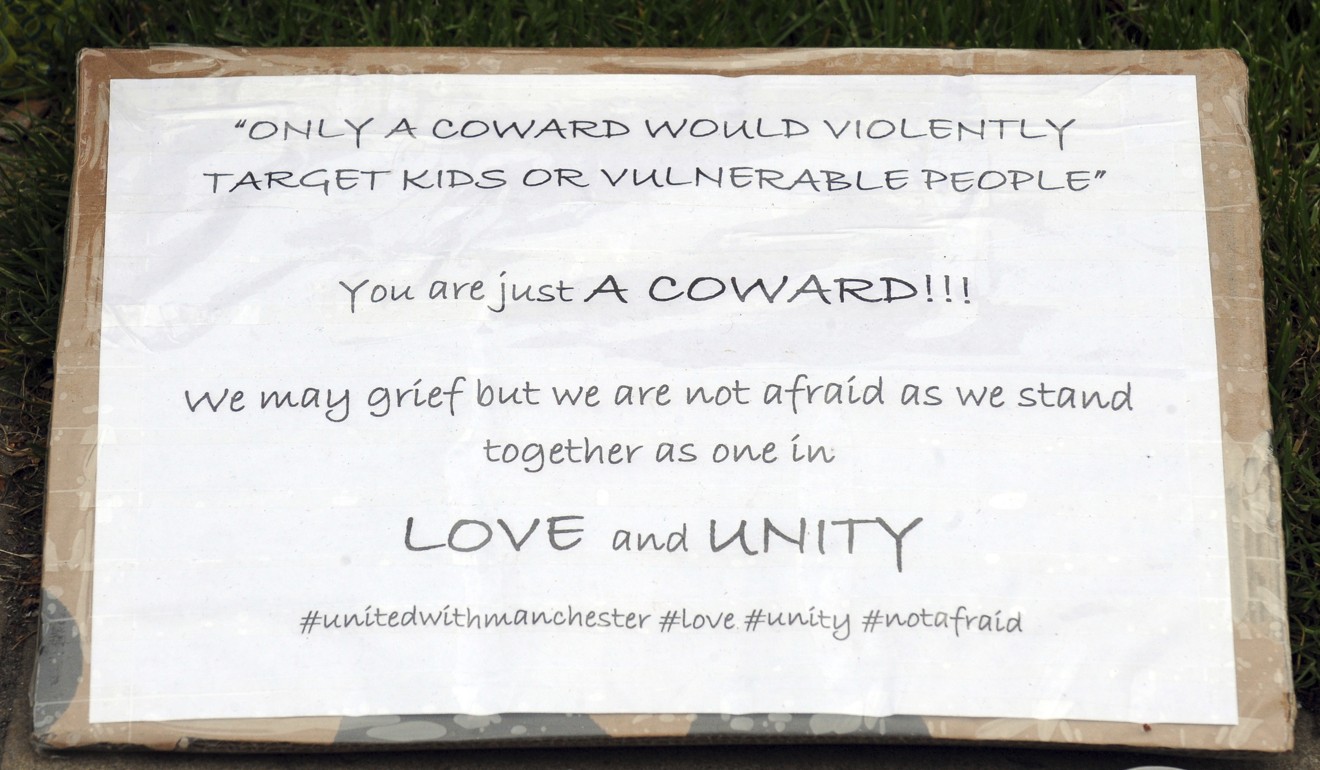 “ONLY A COWARD WOULD VIOLENTLY
TARGET KIDS OR VULNERABLE PEOPLE”
You are just A COWARD!!!
We may grief but we are not afraid as we stand
together as one in
LOVE and UNITY
#unitedwithmanchester #love #unity #notafraid